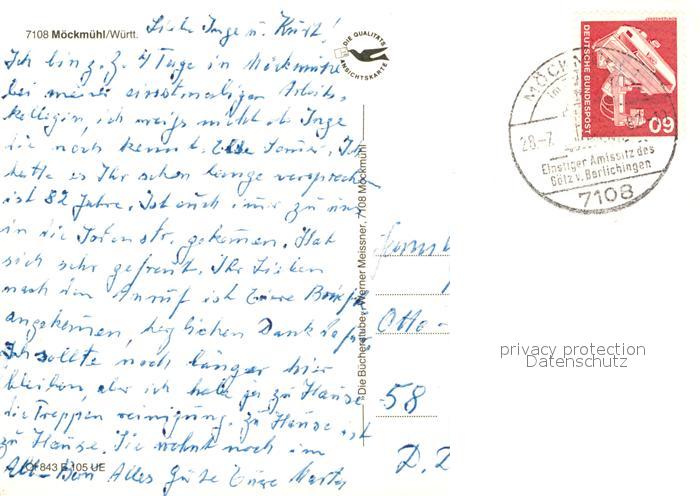 7108 Möckmühl/Württ.
Liebe Inge u. Kurt!
Ich bin z. Z. 4 Tage in Möckmühl
bei meiner einstmaligen Arbeits-
kollegin, ich weiß nicht ob Inge
die noch kennt. Ich
hatte es Ihr schon lange versprochen
ist 82 Jahre. Ist auch immer zu uns
in die gekommen. Hat
sich sehr gefreut. Ihr Lieben
nach dem Anruf ist Euer
angekommen, herzlichen Dank dafür
Ich sollte noch länger hier
bleiben, aber ich habe ja zu Hause
die Treppenreinigung. Zu Hause ist
zu Hause. Sie wohnt noch im
Alles Gute Eure Martha
DIE QUALITÄTS
ANSICHTSKARTE
Die Bücherstube, Werner Meissner, 7108 Möckmühl
843 E 105 UE
DEUTSCHE BUNDESPOST
60
28.-7.
Einstiger Amtssitz des
Götz v. Berlichingen
7108
Otto-
58
privacy protection
Datenschutz